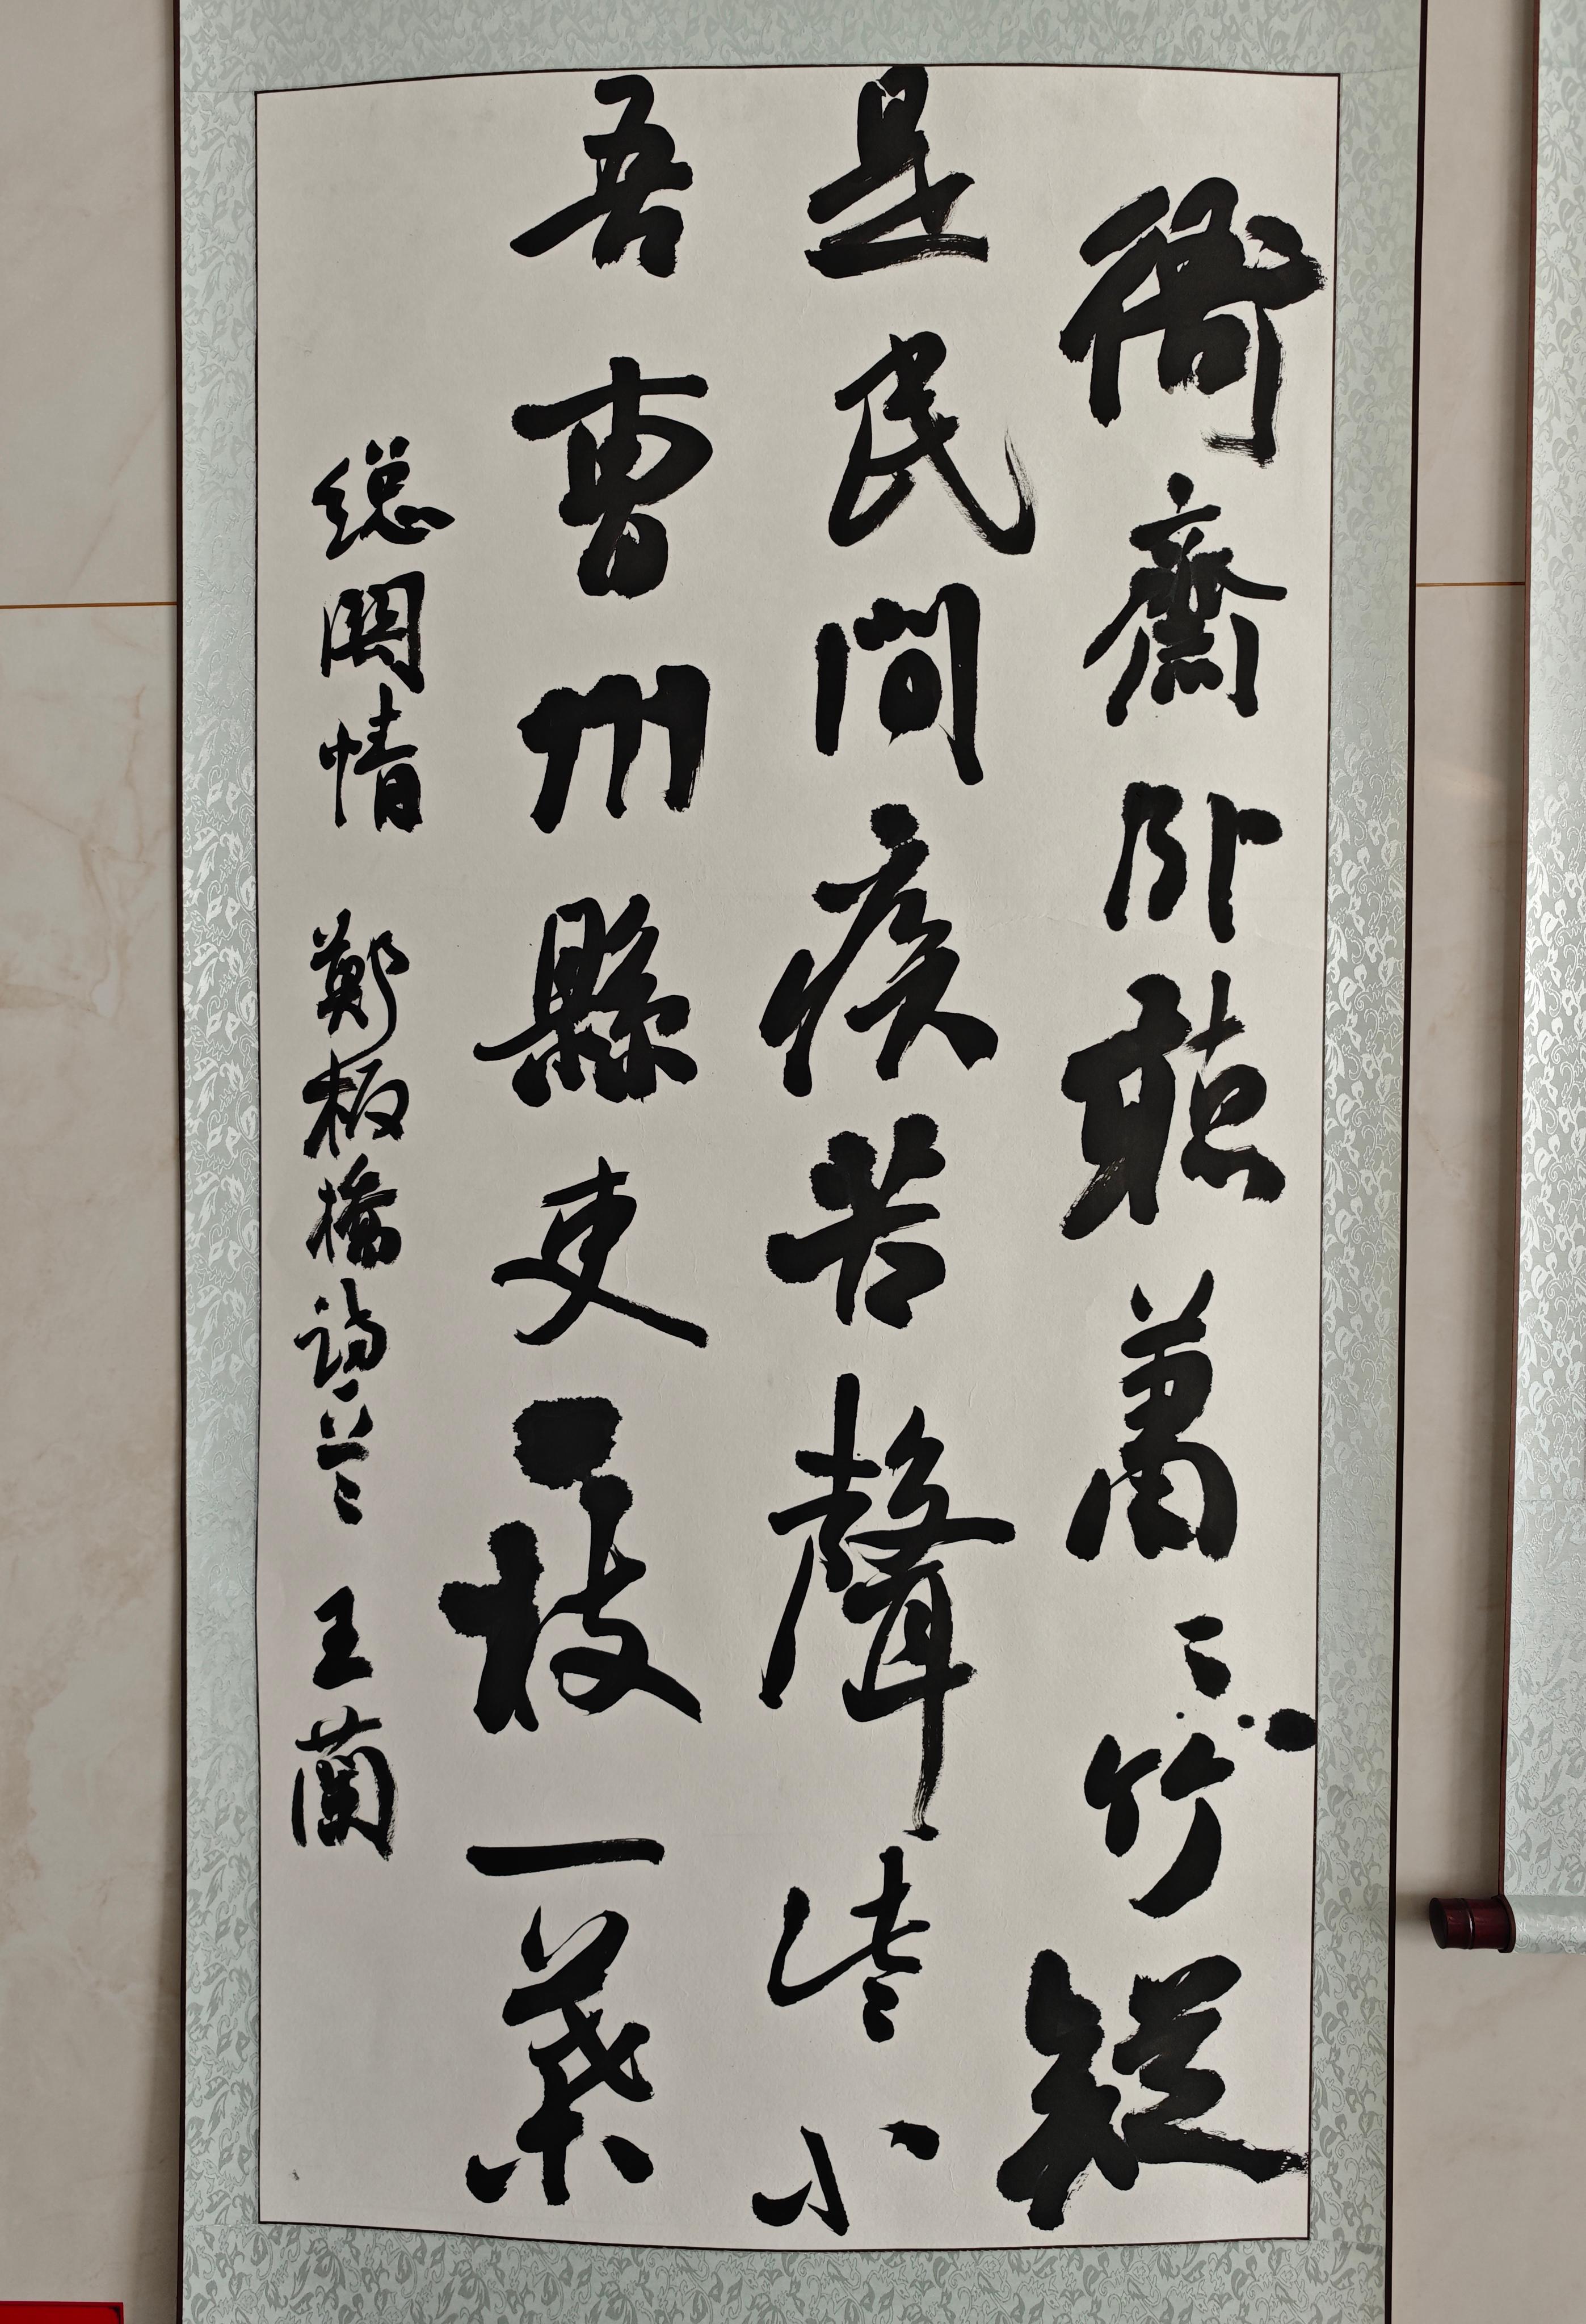 衙齋卧聽蕭〻竹疑
是民間疾苦聲些〻小
吾曹州縣吏一枝一葉
總關情 鄭板橋詩一首 王蘭